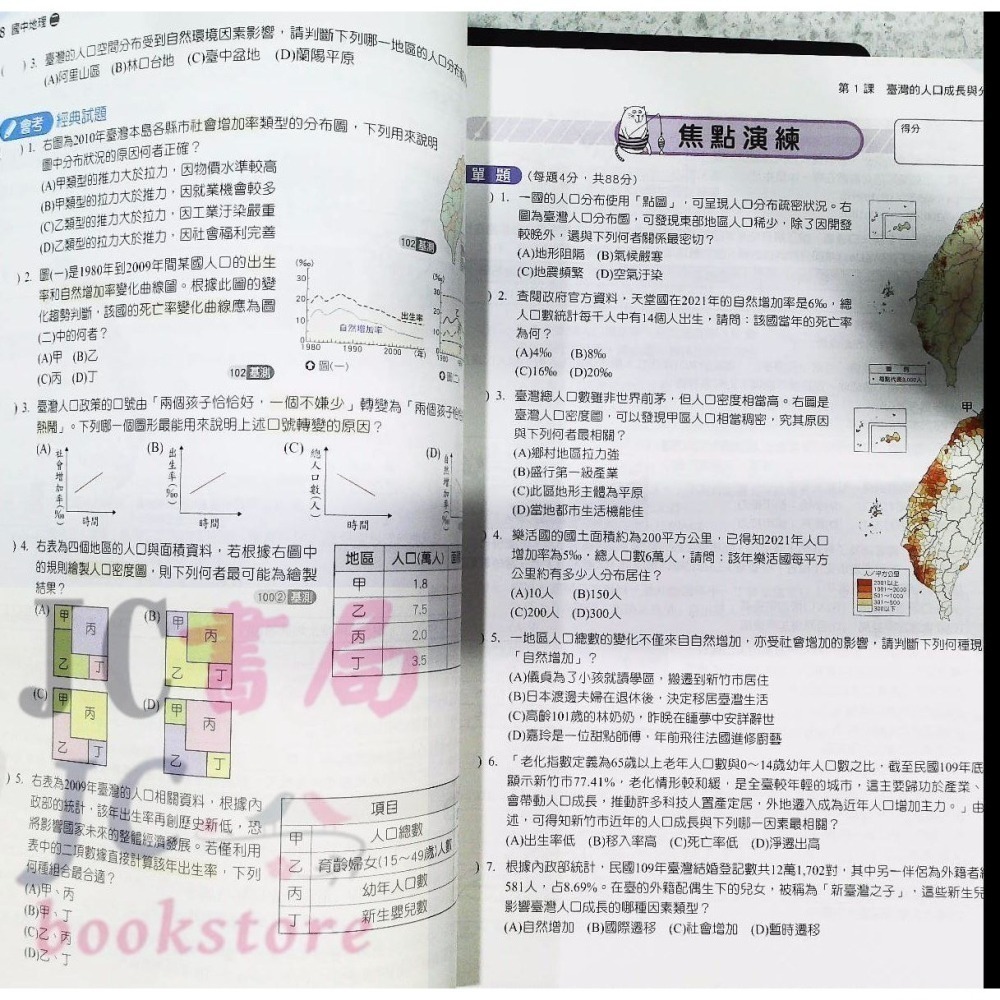 8 國中地理 二
( ) 3. 臺灣的人口空間分布受到自然環境因素影響，請判斷下列哪一地區的人口分布
(A)阿里山區 (B)林口台地 (C)臺中盆地 (D)蘭陽平原
會考 經典試題
) 1. 右圖為2010年臺灣本島各縣市社會增加率類型的分布圖，下列用來說明
圖中分布狀況的原因何者正確？
(A)甲類型的推力大於拉力，因物價水準較高
(B)甲類型的拉力大於推力，因就業機會較多
(C)乙類型的推力大於拉力，因工業汙染嚴重
(D)乙類型的拉力大於推力，因社會福利完善
102 基測
) 2. 圖(一)是1980年到2009年間某國人口的出生
率和自然增加率變化曲線圖。根據此圖的變
化趨勢判斷，該國的死亡率變化曲線應為圖
(二)中的何者？
(A)甲 (B)乙
(C)丙 (D)丁
102 基測
(‰)
30
20
10
0
出生率
自然增加率
1980 1990 2000 (年)
圖(一)
(‰)
30
20
10
0
1980
圖(二
) 3. 臺灣人口政策的口號由「兩個孩子恰恰好，一個不嫌少」轉變為「兩個孩子恰
熱鬧」。下列哪一個圖形最能用來說明上述口號轉變的原因？
(A) 社會增加率(‰) 時間
(B) 出生率(‰) 時間
(C) 總人口數(人) 時間
(D) 自然增加率(‰)
) 4. 右表為四個地區的人口與面積資料，若根據右圖中
的規則繪製人口密度圖，則下列何者最可能為繪製
結果？
100② 基測
地區 人口(萬人) 面
甲 1.8
乙 7.5
丙 2.0
丁 3.5
(A) 甲 丙 乙 丁
(B) 甲 丙 乙 丁
(C) 甲 丙 乙 丁
(D) 甲 丙 乙 丁
) 5. 右表為2009年臺灣的人口相關資料，根據內
政部的統計，該年出生率再創歷史新低，恐
將影響國家未來的整體經濟發展。若僅利用
表中的二項數據直接計算該年出生率，下列
何種組合最合適？
(A)甲、丙
(B)甲、丁
(C)乙、丙
(D)乙、丁
項目
甲 人口總數
乙 育齡婦女(15～49歲)人數
丙 幼年人口數
丁 新生嬰兒數
JC書局
JC
bookstore
第 1 課 臺灣的人口成長與分
焦點演練
得分
單 題 (每題4分，共88分)
) 1. 一國的人口分布使用「點圖」，可呈現人口分布疏密狀況。右
圖為臺灣人口分布圖，可發現東部地區人口稀少，除了因開發
較晚外，還與下列何者關係最密切？
(A)地形阻隔 (B)氣候嚴寒
(C)地震頻繁 (D)空氣汙染
) 2. 查閱政府官方資料，天堂國在2021年的自然增加率是6‰，總
人口數統計每千人中有14個人出生，請問：該國當年的死亡率
為何？
(A)4‰ (B)8‰
(C)16‰ (D)20‰
圖 例
) 3. 臺灣總人口數雖非世界前茅，但人口密度相當高。右圖是
臺灣人口密度圖，可以發現甲區人口相當稠密，究其原因
與下列何者最相關？
(A)鄉村地區拉力強
(B)盛行第一級產業
(C)此區地形主體為平原
(D)當地都市生活機能佳
甲
) 4. 樂活國的國土面積約為200平方公里，已得知2021年人口
增加率為5‰，總人口數6萬人，請問：該年樂活國每平方
公里約有多少人分布居住？
(A)10人 (B)150人
(C)200人 (D)300人
人／平方公里
2001以上
1001～2000
501～1000
301～500
300以下
) 5. 一地區人口總數的變化不僅來自自然增加，亦受社會增加的影響，請判斷下列何種現
「自然增加」？
(A)儀貞為了小孩就讀學區，搬遷到新竹市居住
(B)日本渡邊夫婦在退休後，決定移居臺灣生活
(C)高齡101歲的林奶奶，昨晚在睡夢中安詳辭世
(D)嘉玲是一位甜點師傅，年前飛往法國進修廚藝
) 6. 「老化指數定義為65歲以上老年人口數與0～14歲幼年人口數之比，截至民國109年底
顯示新竹市77.41%，老化情形較和緩，是全臺較年輕的城市，這主要歸功於產業、
會帶動人口成長，推動許多科技人置產定居，外地遷入成為近年人口增加主力。」由
述，可得知新竹市近年的人口成長與下列哪一因素最相關？
(A)出生率低 (B)移入率高 (C)死亡率低 (D)淨遷出高
) 7. 根據內政部統計，民國109年臺灣結婚登記數共12萬1,702對，其中另一伴侶為外籍者
581人，占8.69%。在臺的外籍配偶生下的兒女，被稱為「新臺灣之子」，這些新生兒
影響臺灣人口成長的哪種因素類型？
(A)自然增加 (B)國際遷移 (C)社會增加 (D)暫時遷移